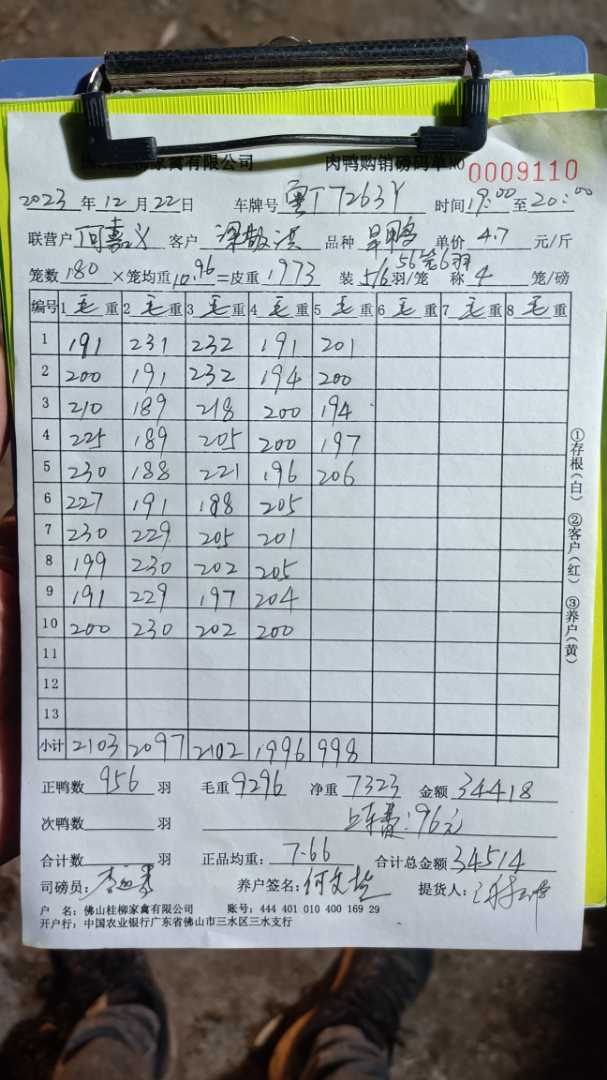 家禽有限公司 肉鸭购销磅码单№ 0009110
2023 年 12 月 22 日 车牌号 粤T7263Y 时间 19:00 至 20:00
联营户 何嘉义 客户 品种 旱鸭 单价 4.7 元/斤
56笼6羽
笼数 180 ×笼均重 10.96 =皮重 1973 装 5/6 羽/笼 称 4 笼/磅
编号 1 毛 重 2 毛 重 3 毛 重 4 毛 重 5 毛 重 6 毛 重 7 毛 重 8 毛 重
1 191 231 232 191 201
2 200 191 232 194 200
3 210 189 218 200 194
4 225 189 205 200 197
5 230 188 221 196 206
6 227 191 188 205
7 230 229 205 201
8 199 230 202 205
9 191 229 197 204
10 200 230 202 200
11
12
13
小计 2103 2097 2102 1996 998
正鸭数 956 羽 毛重 9296 净重 7323 金额 34418
次鸭数 羽 上车费:96元
合计数 羽 正品均重: 7.66 合计总金额 34514
司磅员: 养户签名: 何文 提货人:
户 名: 佛山桂柳家禽有限公司 账号: 444 401 010 400 169 29
开户行: 中国农业银行广东省佛山市三水区三水支行
①存根(白) ②客户(红) ③养户(黄)